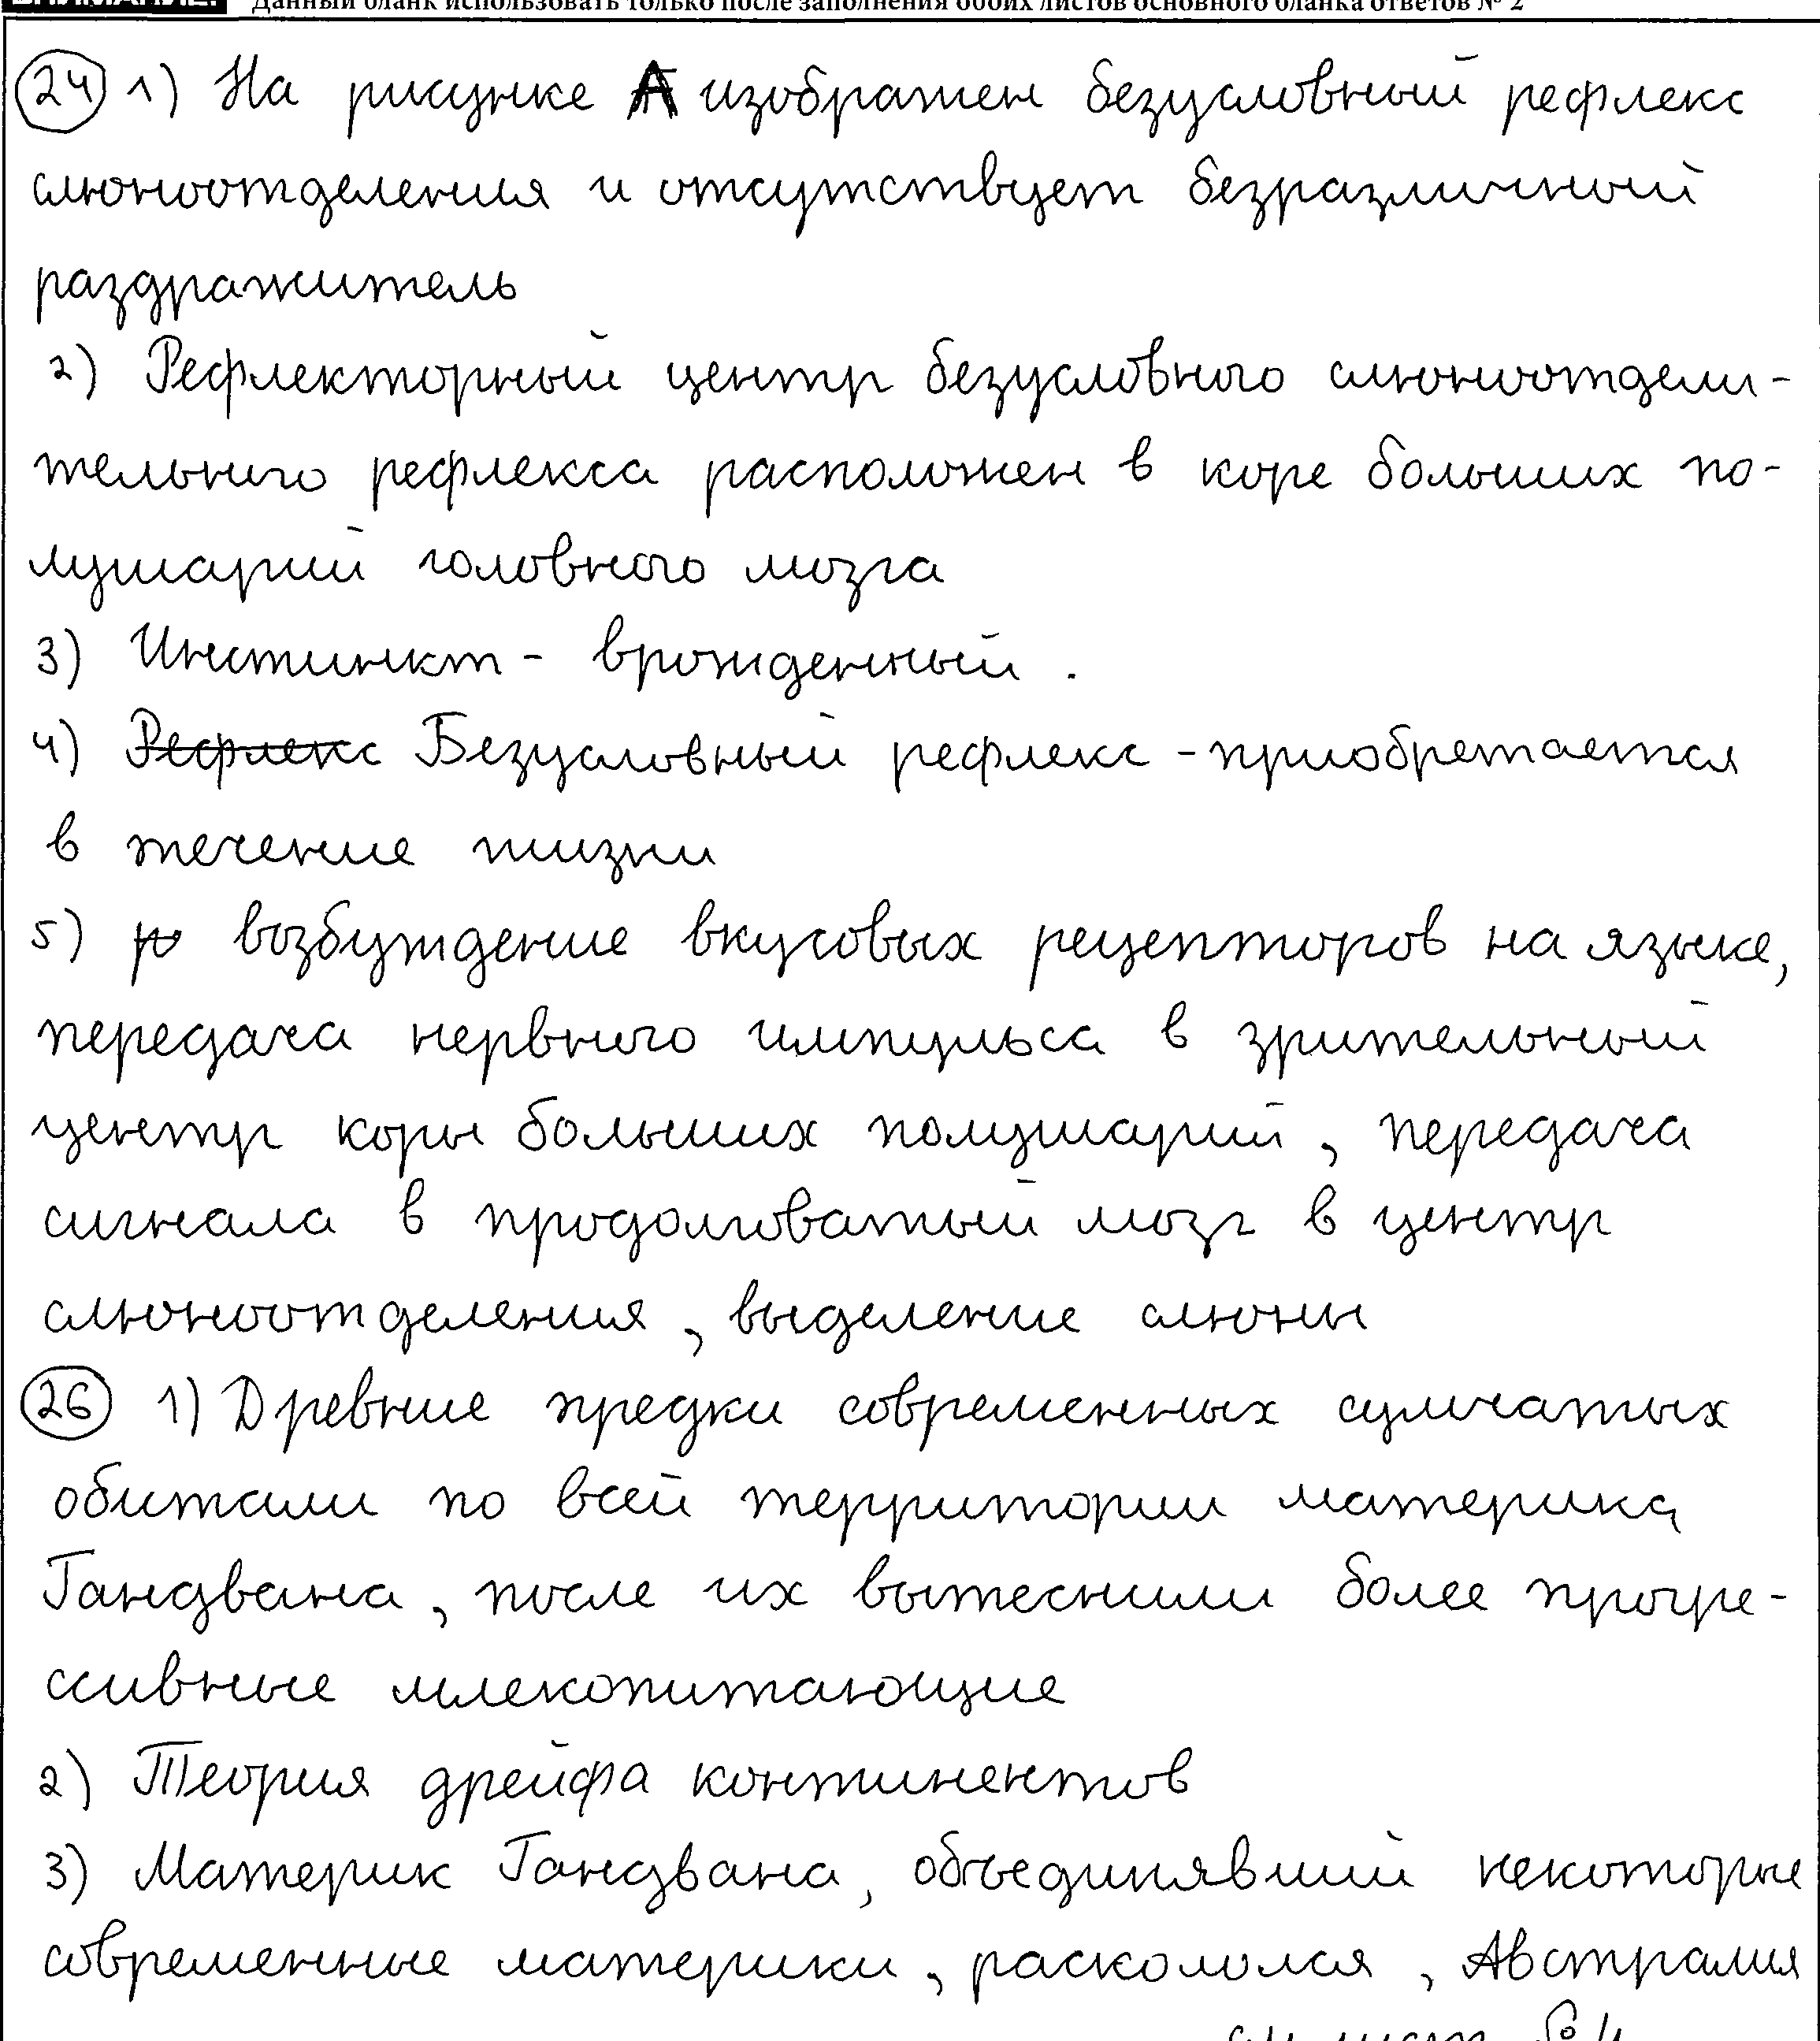 Данный бланк использовать только после заполнения обоих листов основного бланка ответов № 2
24 1) На рисунке А изображен безусловный рефлекс
слюноотделения и отсутствует безразличный
раздражитель
2) Рефлекторный центр безусловного слюноотдели-
тельного рефлекса расположен в коре больших по-
лушарий головного мозга
3) Инстинкт - врожденный.
4) Рефлекс Безусловный рефлекс - приобретается
в течение жизни
5) возбуждение вкусовых рецепторов на языке,
передача нервного импульса в зрительный
центр коры больших полушарий, передача
сигнала в продолговатый мозг в центр
слюноотделения, выделение слюны
26 1) Древние предки современных сумчатых
обитали по всей территории материка
Гандвана, после их вытеснили более прогре-
ссивные млекопитающие
2) Теория дрейфа континентов
3) Материк Гандвана, объединявший некоторые
современные материки, раскололся, Австралия